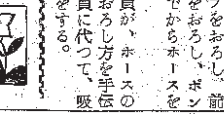 おろし、前
をおろし、ポン
でからホースを
員が、ホースの
おろし方を手伝
員に代つて、吸
をする。